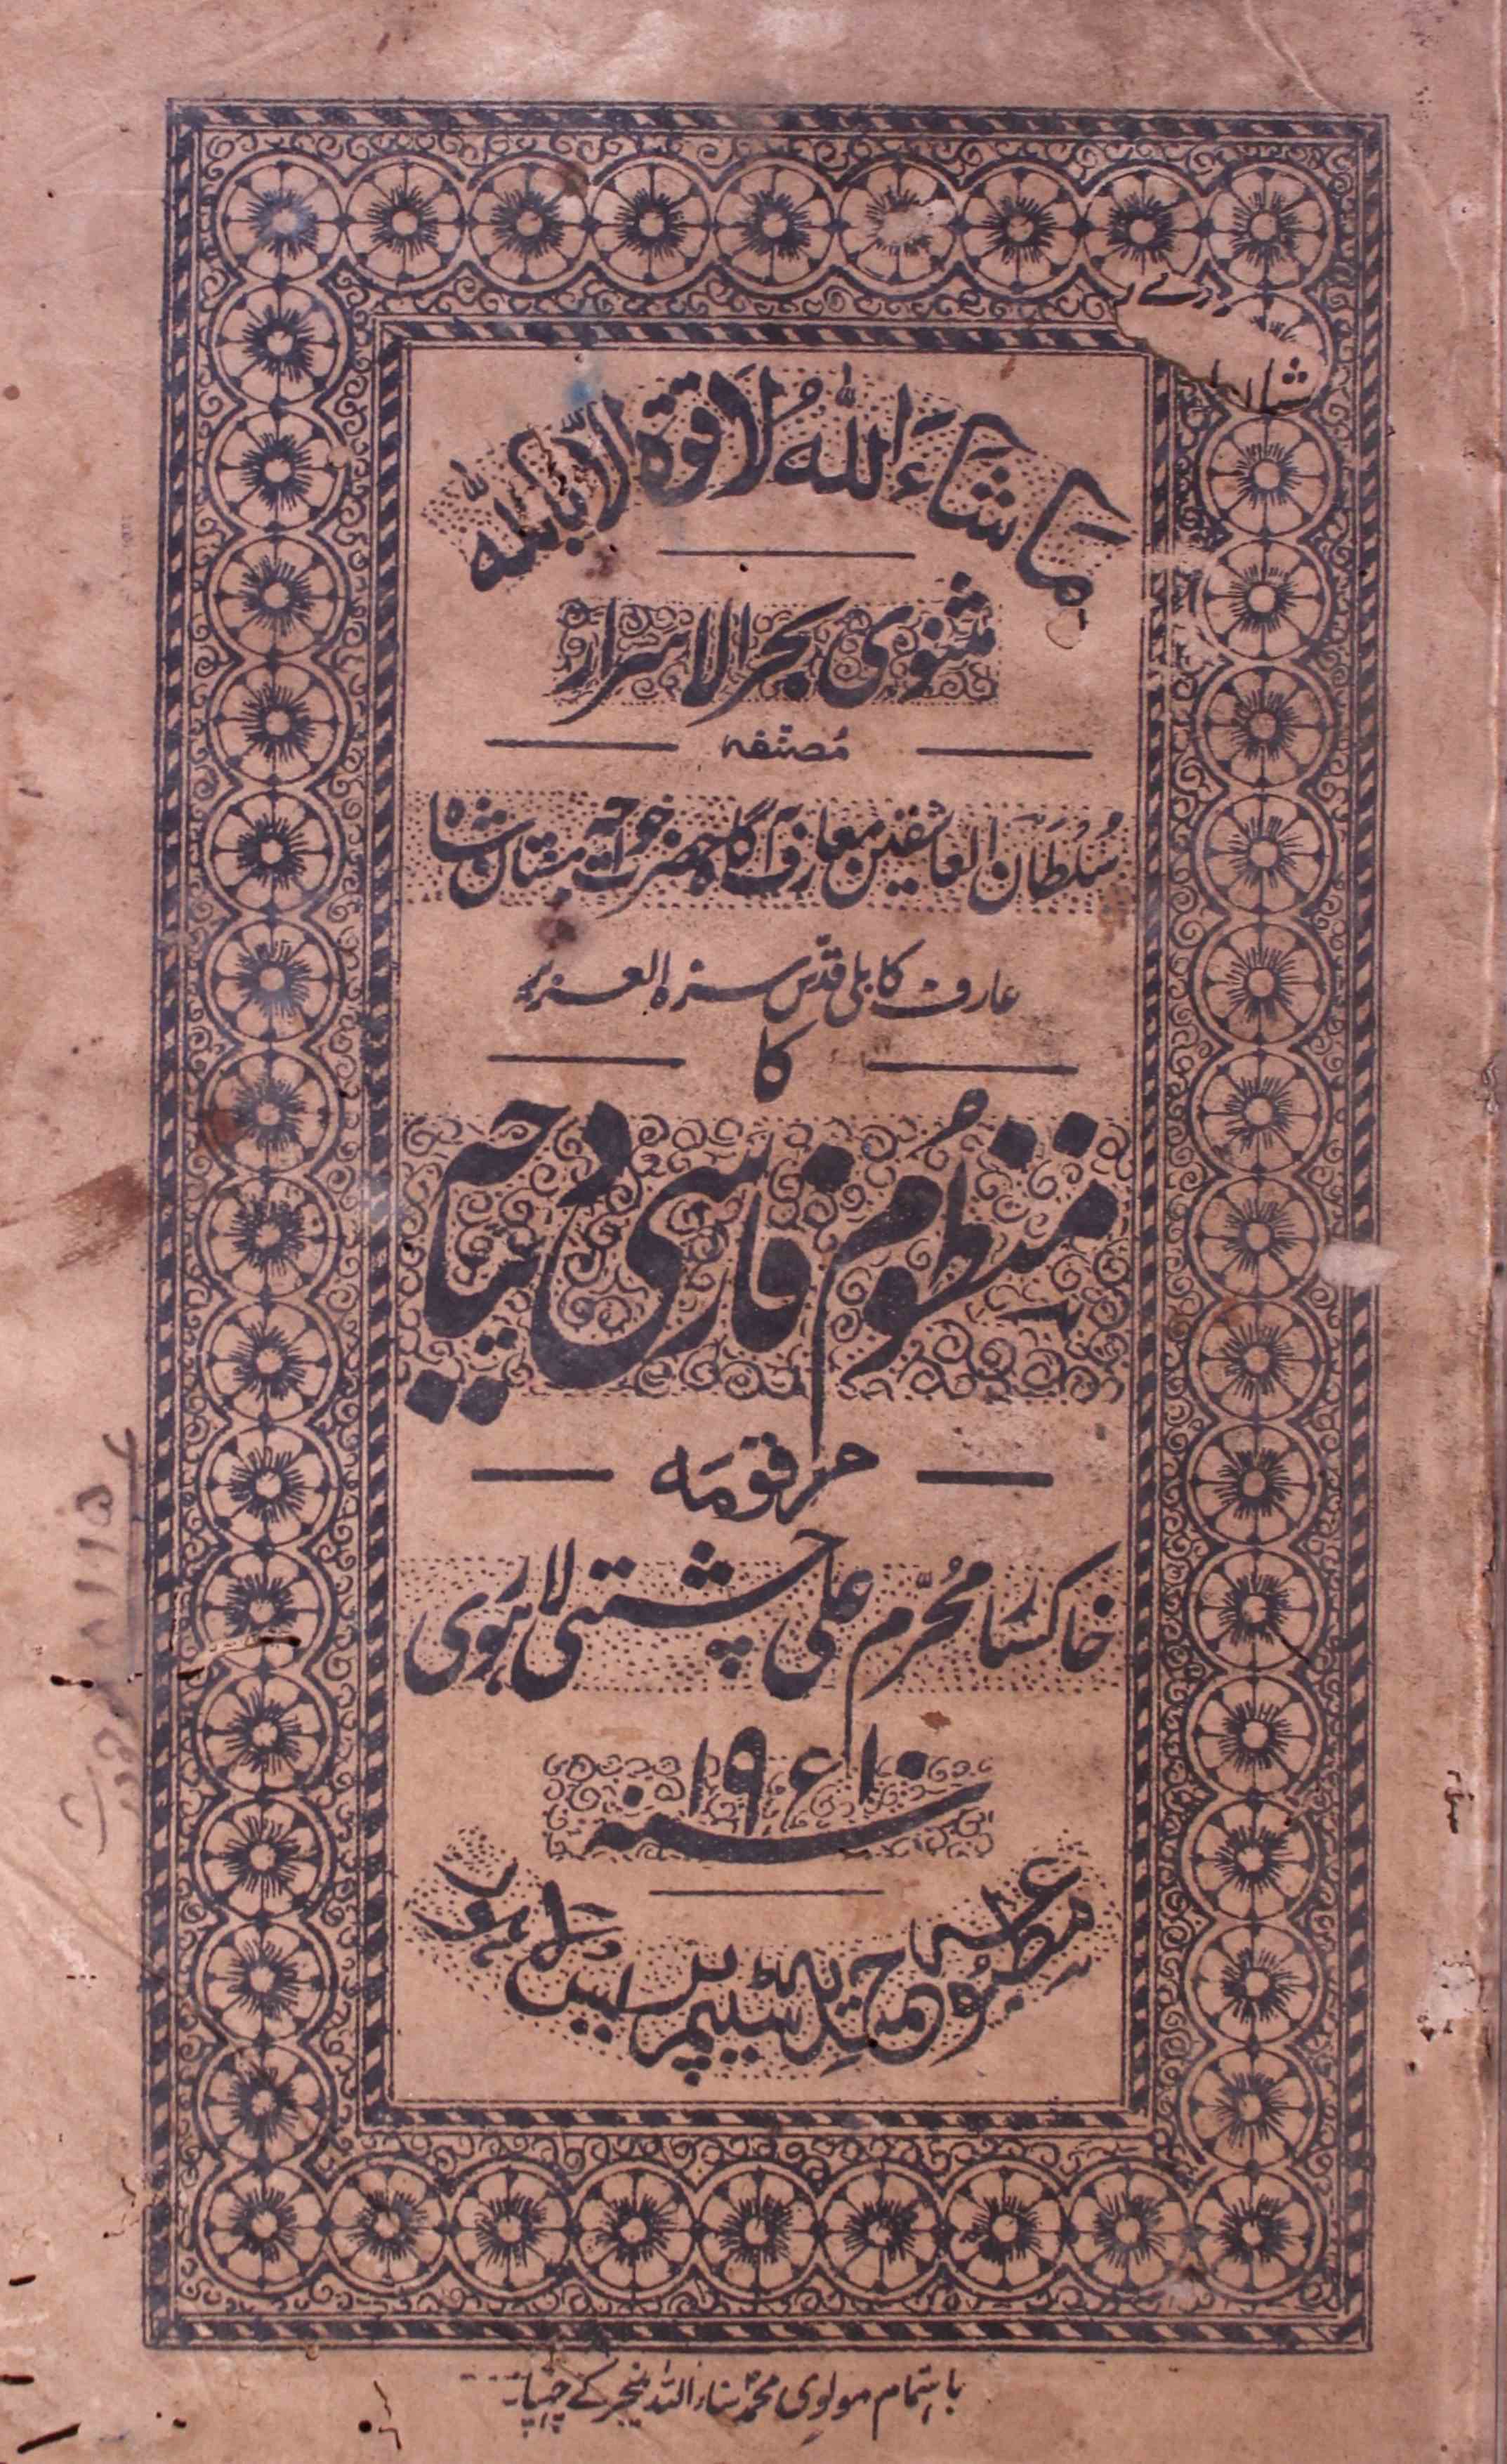 ماشاءَ اللهُ لا قوة الا بالله
مثنوی بحر الاسرار
مصنفہ
سُلطان العاشقین معارف آگاہ حضرت خواجہ مستان شاہ
عارف کابلی قدّس سرہ العزیز
کا
منظوم فارسی دیباچہ
مرقومہ
خاکسار محرّم علی چشتی لاہوری
سنہ ۱۹۱۰ء
مطبوعہ حمیدیہ سٹیم پریس لاہور
باہتمام مولوی محمد ثناء اللہ منیجر کے چھپا